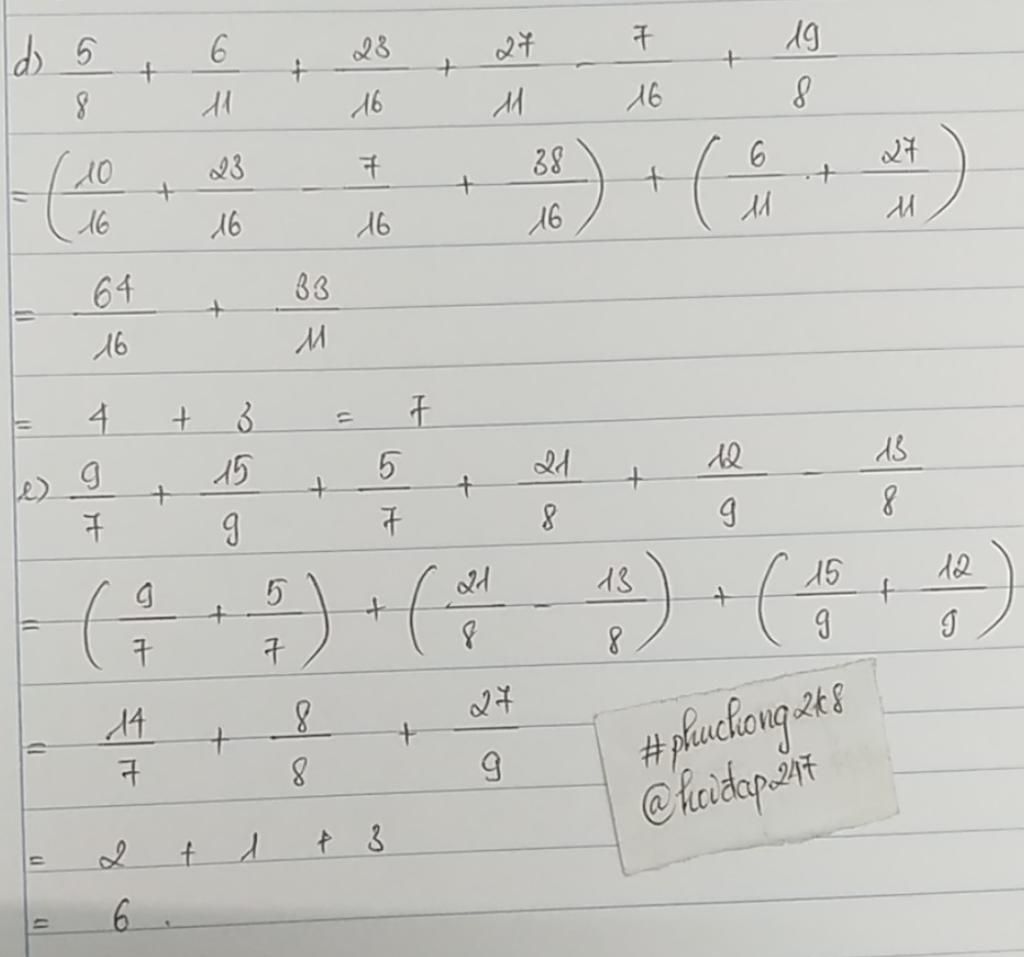 d) 5/8 + 6/11 + 23/16 + 27/11 - 7/16 + 19/8
= (10/16 + 23/16 - 7/16 + 38/16) + (6/11 + 27/11)
= 64/16 + 33/11
= 4 + 3 = 7
e) 9/7 + 15/9 + 5/7 + 21/8 + 12/9 - 13/8
= (9/7 + 5/7) + (21/8 - 13/8) + (15/9 + 12/9)
= 14/7 + 8/8 + 27/9
#phuchong2k8
@hoidap247
= 2 + 1 + 3
= 6.